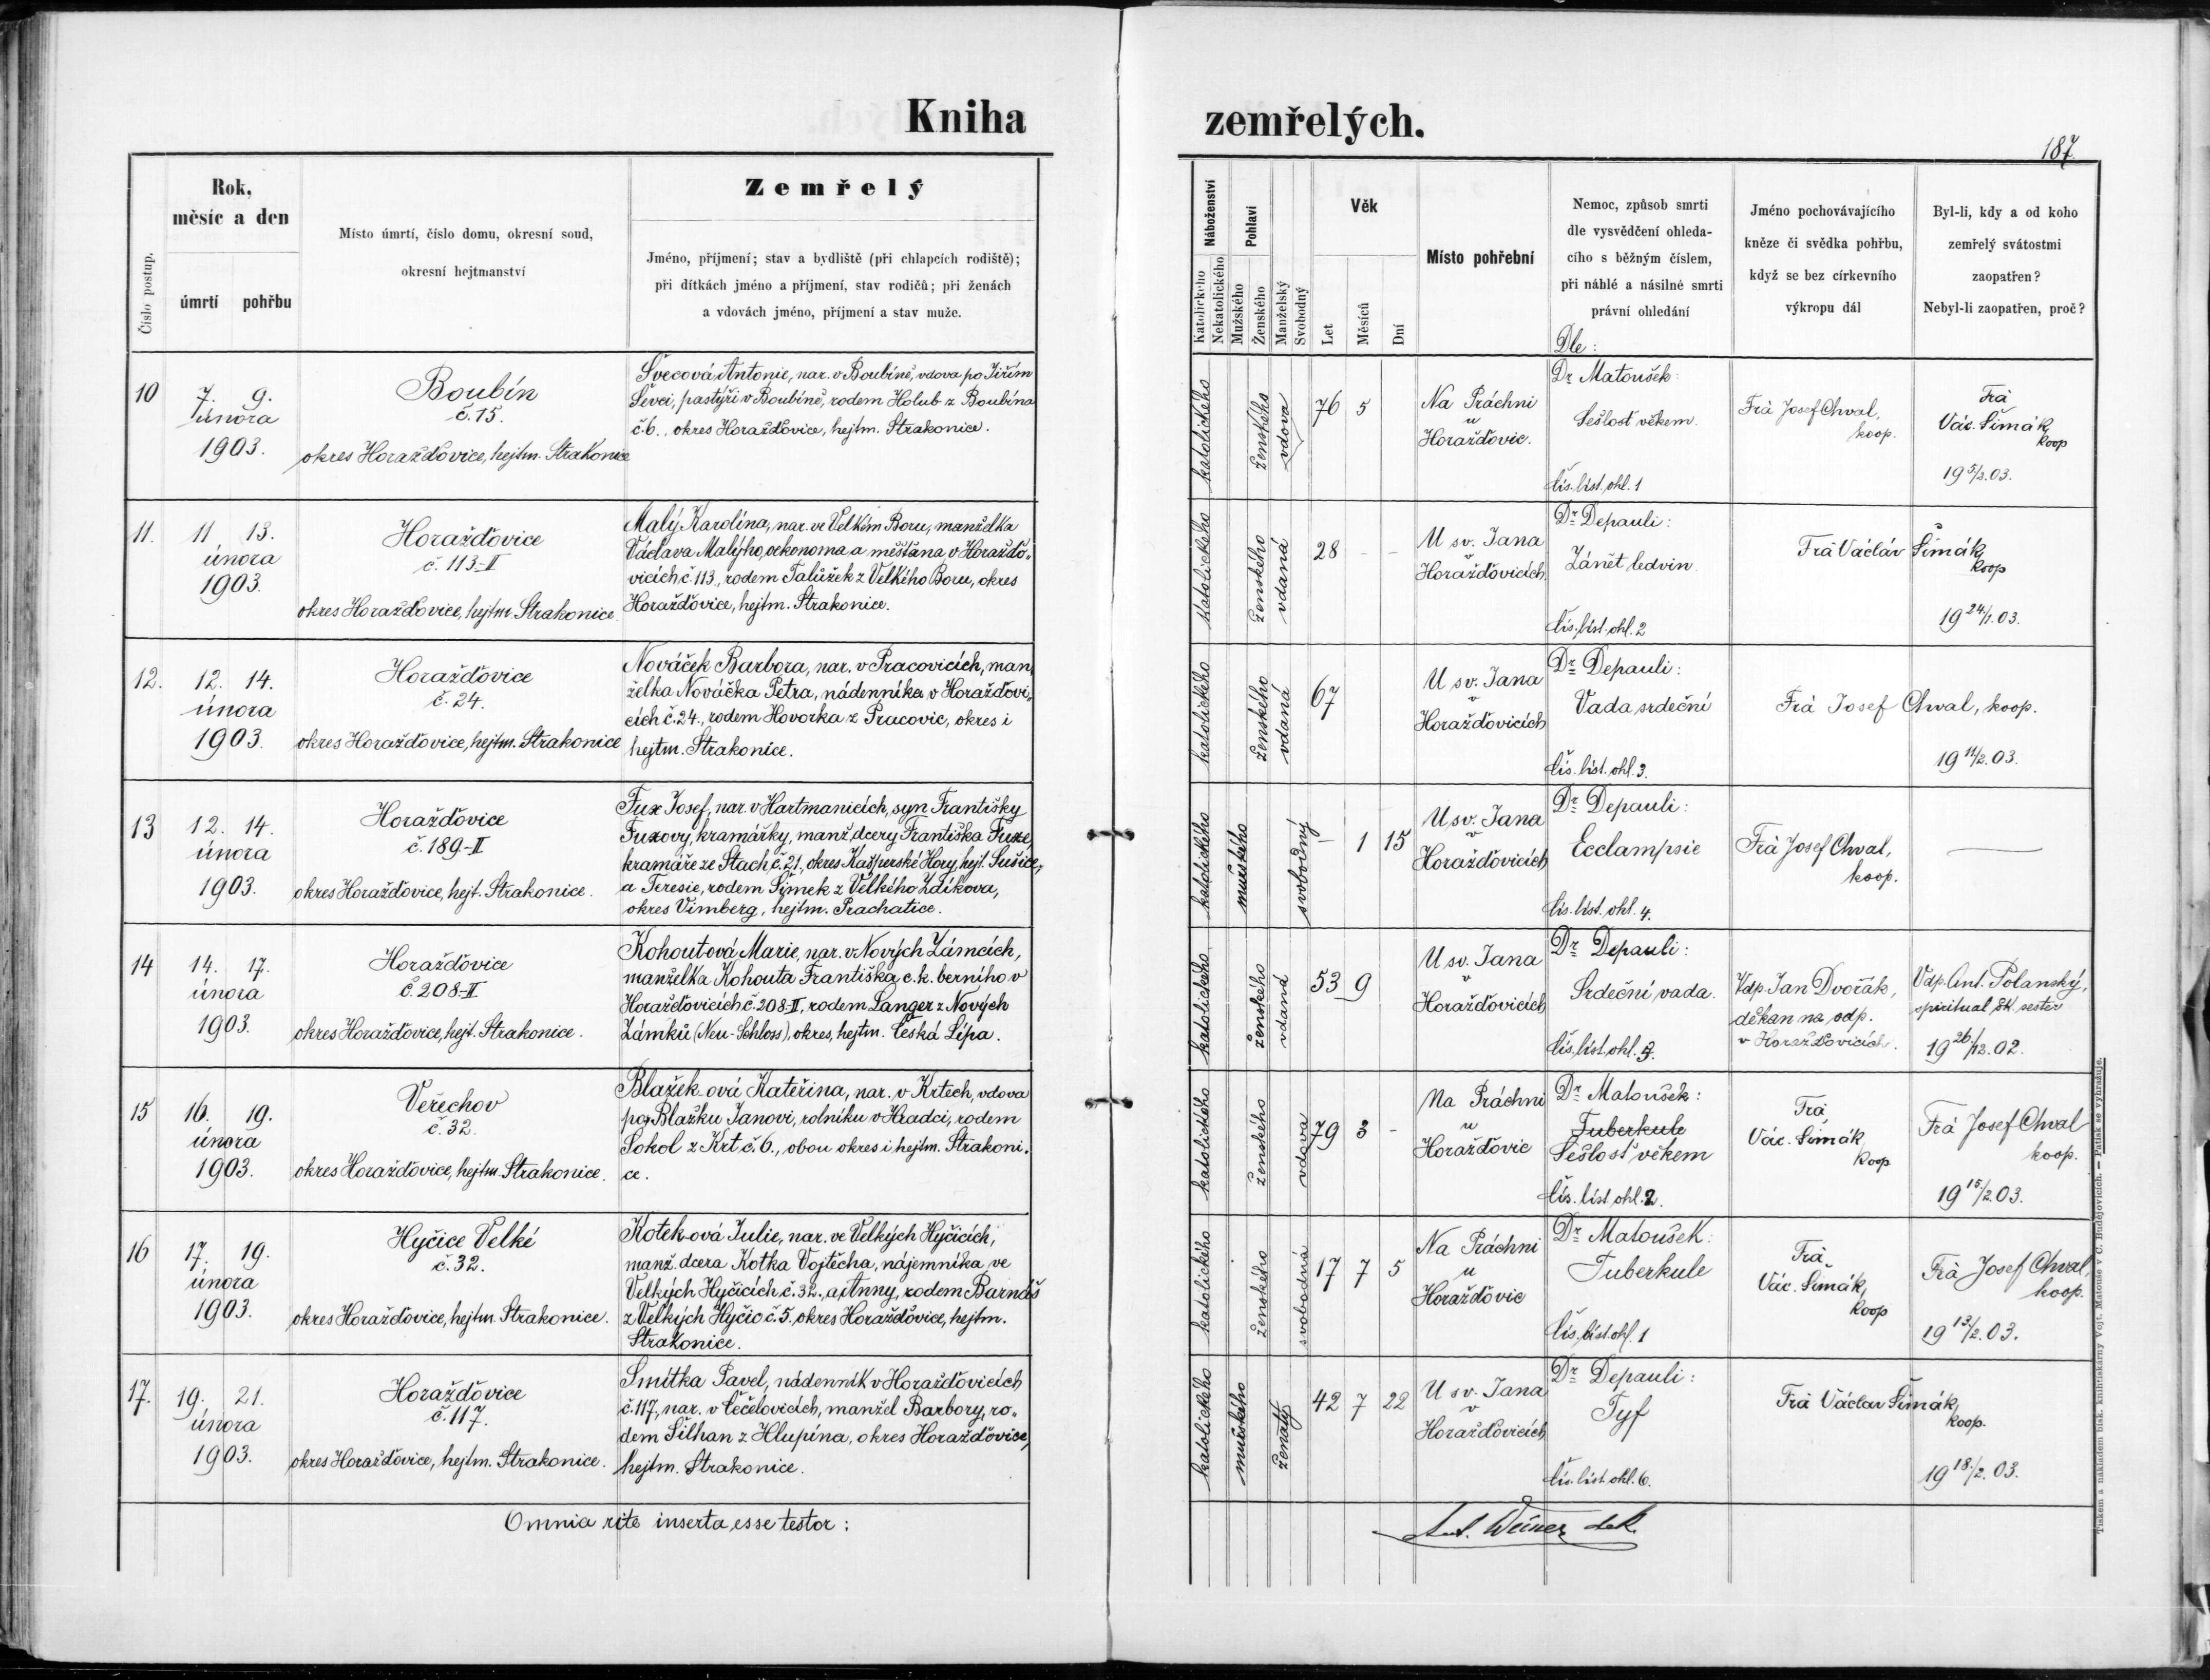 Kniha
zemřelých.
187.
Číslo postup.
Rok,
měsíc a den
úmrtí
pohřbu
Místo úmrtí, číslo domu, okresní soud,
okresní hejtmanství
Zemřelý
Jméno, příjmení; stav a bydliště (při chlapcích rodiště);
při dítkách jméno a příjmení, stav rodičů; při ženách
a vdovách jméno, příjmení a stav muže.
Náboženství
Katolického
Nekatolického
Pohlaví
Mužského
Ženského
Manželský
Svobodný
Věk
Let
Měsíců
Dní
Místo pohřební
Nemoc, způsob smrti
dle vysvědčení ohleda-
cího s běžným číslem,
při náhlé a násilné smrti
právní ohledání
Dle:
Jméno pochovávajícího
kněze či svědka pohřbu,
když se bez církevního
výkropu dál
Byl-li, kdy a od koho
zemřelý svátostmi
zaopatřen?
Nebyl-li zaopatřen, proč?
10
7. 9.
února
1903.
Boubín
č. 15.
okres Horažďovice, hejtm. Strakonice
Švecová Antonie, nar. v Boubíně, vdova po Jiřím
Ševci, pastýři v Boubíně, rodem Holub z Boubína
č. 6., okres Horažďovice, hejtm. Strakonice.
katolického
ženského
vdova
76 5
Na Práchni
u
Horažďovic.
Dr Matoušek:
Sešlost věkem.
čís. list. ohl. 1
Frà Josef Chval,
koop.
Frà
Vác. Šimák,
koop
19 5/2. 03.
11.
11 13.
února
1903.
Horažďovice
č. 113-II
okres Horažďovice, hejtm. Strakonice
Malý Karolína, nar. ve Velkém Boru, manželka
Václava Malýho, oekonoma a měšťana v Horažďo„
vicích č. 113., rodem Talůžek z Velkého Boru, okres
Horažďovice, hejtm. Strakonice.
katolického
ženského
vdaná
28 - -
U sv. Jana
v
Horažďovicích
Dr Depauli:
Zánět ledvin.
čís. list. ohl. 2
Frà Václáv Šimák,
koop
19 24./1. 03.
12.
12. 14.
února
1903.
Horažďovice
č. 24.
okres Horažďovice, hejtm. Strakonice
Nováček Barbora, nar. v Pracovicích, man„
želka Nováčka Petra, nádenníka v Horažďovi„
cích č. 24., rodem Hovorka z Pracovic, okres i
hejtm. Strakonice.
katolického
ženského
vdaná
67
U sv. Jana
v
Horažďovicích
Dr Depauli:
Vada srdeční
čís. list. ohl. 3.
Frà Josef Chval, koop.
19 11/2. 03.
13
12. 14.
února
1903.
Horažďovice
č. 189-II
okres Horažďovice, hejt. Strakonice.
Fux Josef, nar. v Hartmanicích, syn Františky
Fuxovy, kramářky, manž. dcery Františka Fuxe,
kramáře ze Stach č. 21., okres Kašperské Hory, hejt. Sušice,
a Teresie, rodem Šimek z Velkého Zdíkova,
okres Vimberg, hejtm. Prachatice.
katolického
mužského
svobodný
- 1 15
U sv. Jana
v
Horažďovicích
Dr Depauli:
Ecclampsie
čís. list. ohl. 4.
Frà Josef Chval,
koop.
14
14. 17.
února
1903.
Horažďovice
č. 208-II
okres Horažďovice, hejt. Strakonice.
Kohoutová Marie, nar. v Nových Zámcích,
manželka Kohouta Františka, c. k. berního v
Horažďovicích č. 208-II, rodem Langer z Nových
Zámků (Neu-Schloss), okres, hejtm. Česká Lípa.
katolického
ženského
vdaná
53 9
U sv. Jana
v
Horažďovicích
Dr Depauli:
Srdeční vada.
čís. list. ohl. 5.
Vdp. Jan Dvořák,
děkan na odp.
v Horažďovicích.
Vdp. Ant. Polanský,
spirituál šk. sester
19 26./12. 02.
15
16. 19.
února
1903.
Veřechov
č. 32.
okres Horažďovice, hejtm. Strakonice.
Blažek-ová Kateřina, nar. v Krtech, vdova
po Blažku Janovi, rolníku v Hradci, rodem
Sokol z Krt č. 6., obou okres i hejtm. Strakoni„
ce.
katolického
ženského
vdova
79 3 -
Na Práchni
u
Horažďovic
Dr Matoušek:
Tuberkule
Sešlost věkem
čís. list. ohl. 2.
Frà
Vác. Šimák,
koop
Frà Josef Chval
koop.
19 15./2. 03.
16
17. 19.
února
1903.
Hyčice Velké
č. 32.
okres Horažďovice, hejtm. Strakonice.
Kotek-ová Julie, nar. ve Velkých Hyčicích,
manž. dcera Kotka Vojtěcha, nájemníka ve
Velkých Hyčicích č. 32., a Anny, rodem Barnáš
z Velkých Hyčic č. 5. okres Horažďovice, hejtm.
Strakonice.
katolického
ženského
svobodná
17 7 5
Na Práchni
u
Horažďovic
Dr Matoušek:
Tuberkule
čís. list. ohl. 1
Frà
Vác. Šimák,
koop
Frà Josef Chval,
koop.
19 13/2. 03.
17.
19. 21.
února
1903.
Horažďovice
č. 117.
okres Horažďovice, hejtm. Strakonice.
Smítka Pavel, nádenník v Horažďovicích
č. 117., nar. v Čečelovicích, manžel Barbory, ro„
dem Šilhan z Hlupína, okres Horažďovice,
hejtm. Strakonice.
katolického
mužského
ženatý
42 7 22
U sv. Jana
v
Horažďovicích
Dr Depauli:
Tyf
čís. list. ohl. 6.
Frà Václav Šimák,
koop.
19 18./2. 03.
Omnia rite inserta esse testor:
Ant. Weiner dek.
Tiskem a nákladem bisk. knihtiskárny Vojt. Matouše v Č. Budějovicích. — Patisk se vyhražuje.